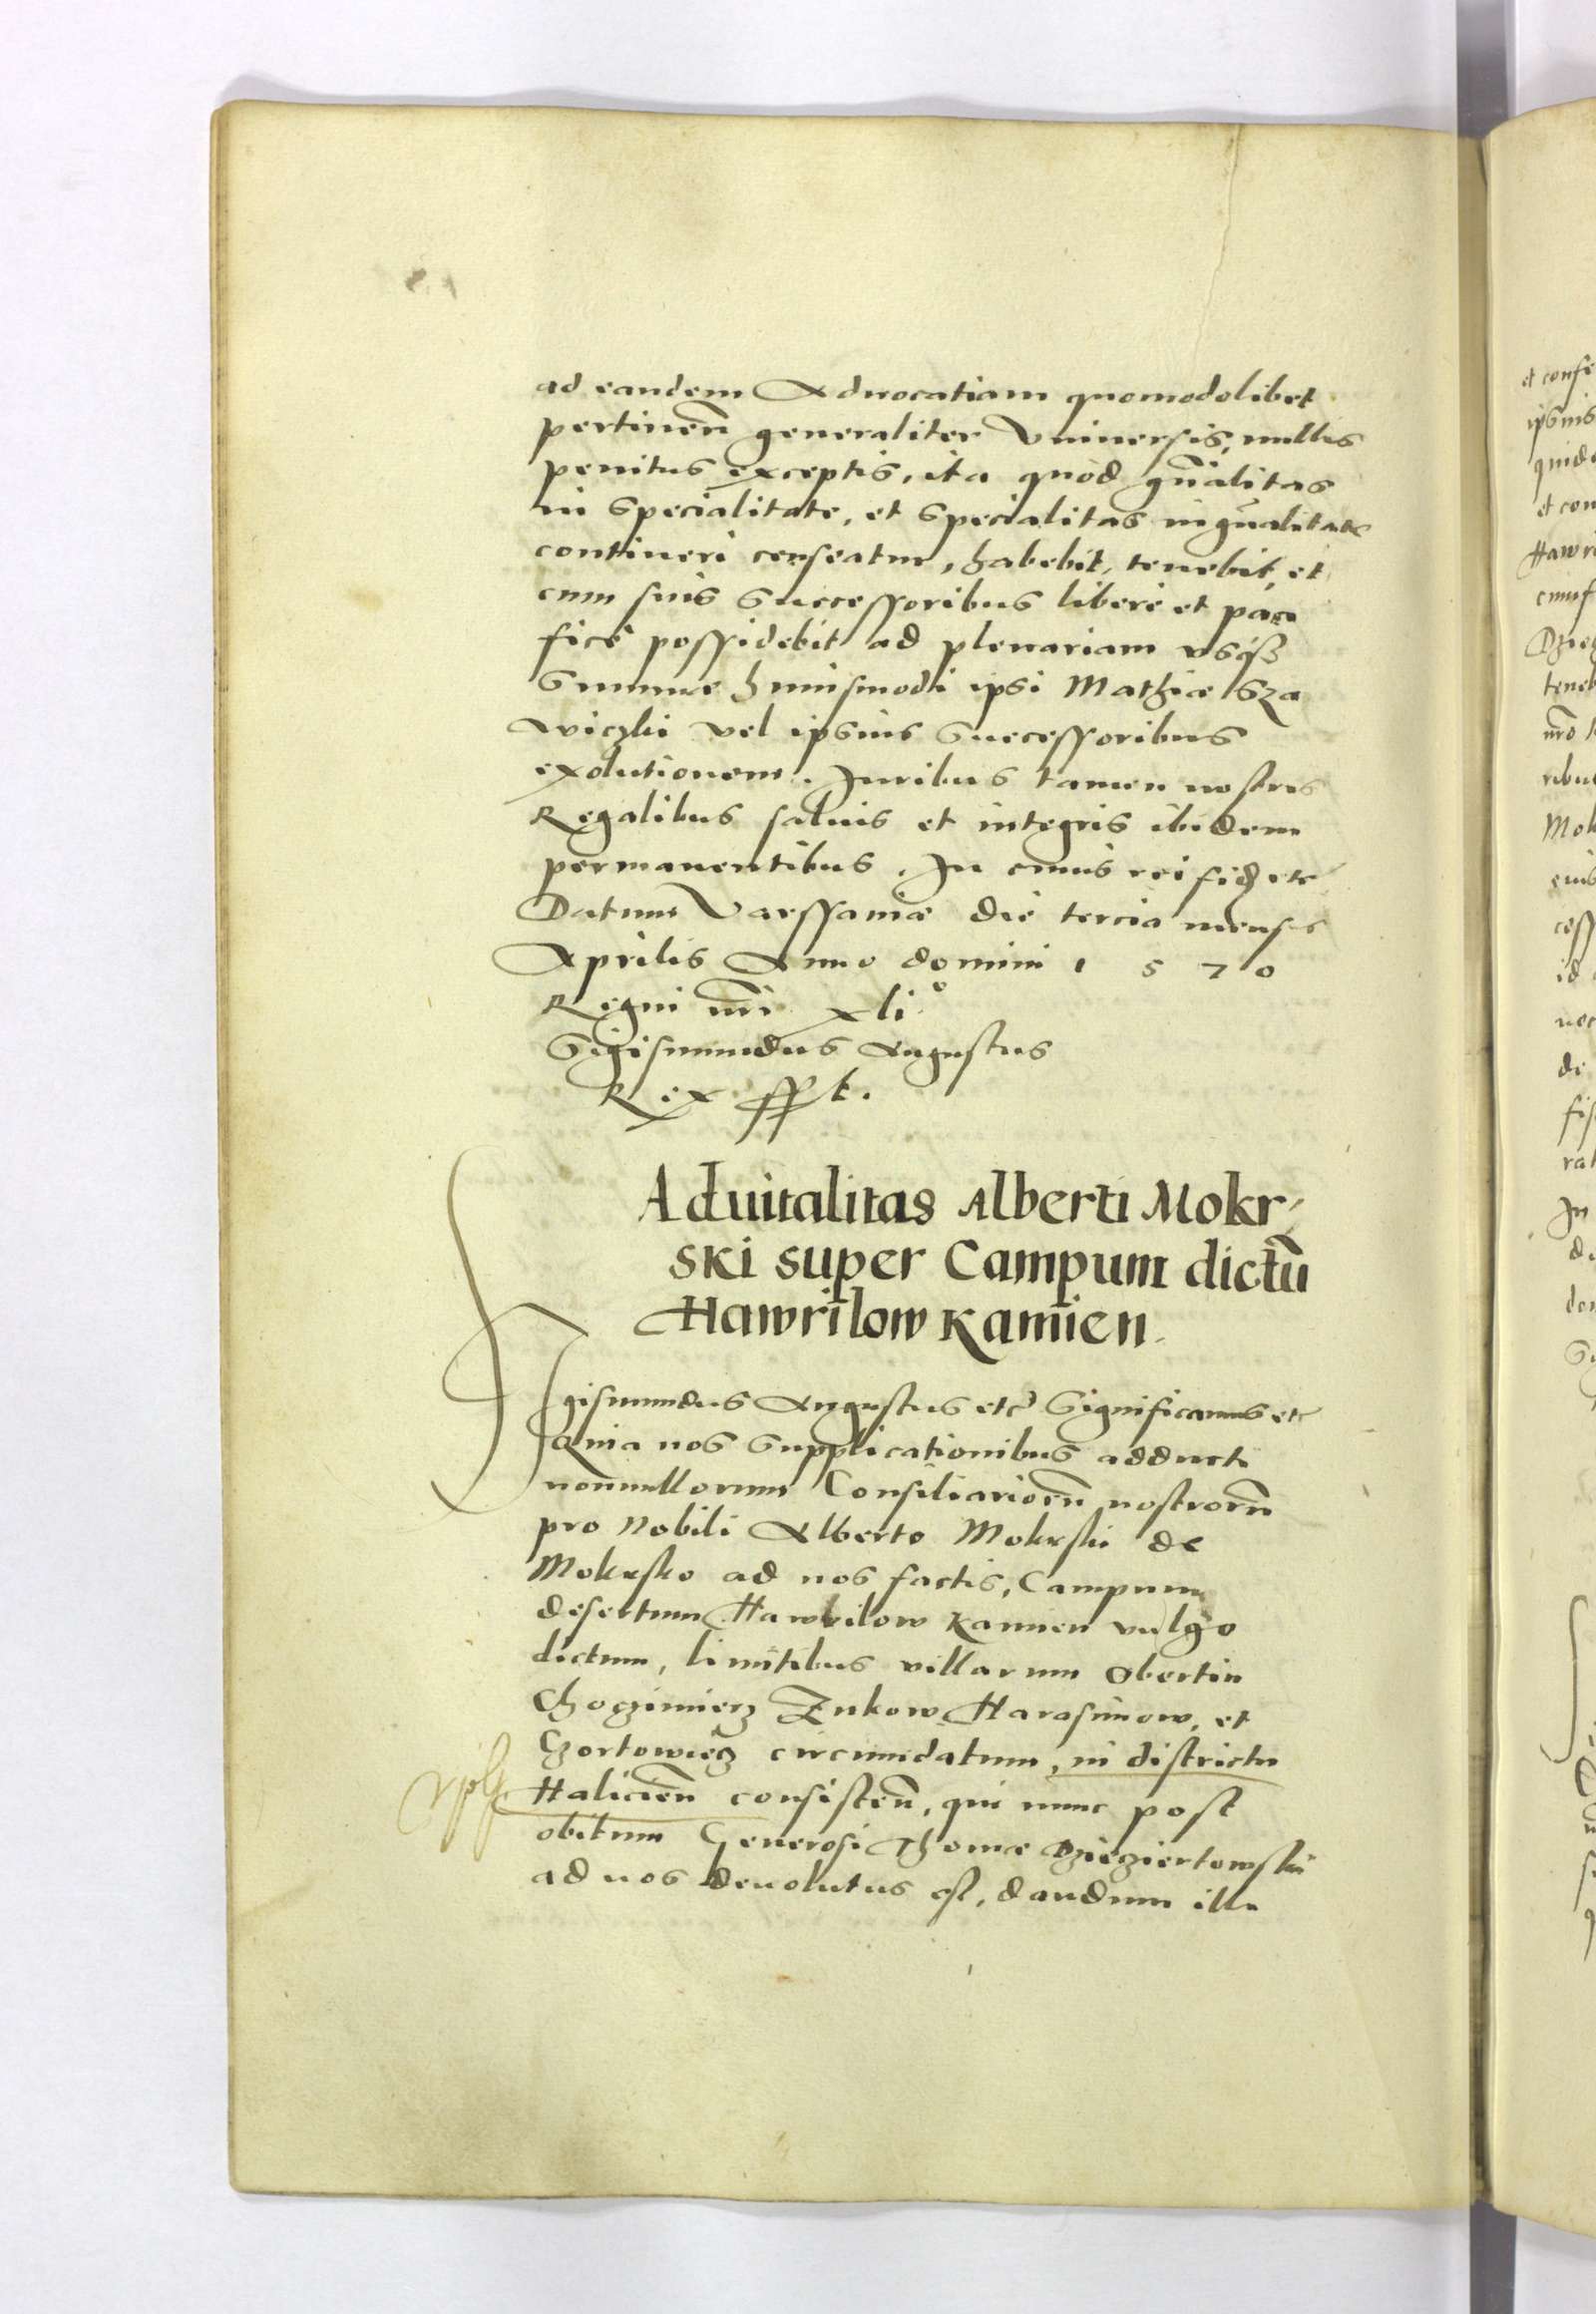 ad eandem Aduocatiam quomodolibet
pertinen̄ generaliter Vniuersis, nullis
penitus exceptis, ita quod gn̄alitas
in Specialitate, et Specialitas in gn̄alitate
contineri censeatur, habebit, tenebit, et
cum suis Successoribus libere et paci
fice possidebit ad plenariam vsqȝ
Summae huiusmodi ipsi Mathiae Sza
wiczki vel ipsius Successoribus
exolutionem. Iuribus tamen nostris
Regalibus saluis et integris ibidem
permanentibus. In cuius rei fidȝ etc
Datum Varssaviae die tercia mensis
Aprilis Anno domini 1 5 7 0
Regni nr̄i xli°
Sigismundus Augustus
Rex sspt.
Aduitalitas Alberti Mokr-
ski super Campum dictū
Hawrilow Kamien.
Sigismundus Augustus etc Significamus etc
Quia nos Supplicationibus adducti
nonnullorum Consiliariorū nostrorū
pro Nobili Alberto Mokrski de
Mokrsko ad nos factis, Campum
desertum Hawrilow Kamien vulgo
dictum, limitibus villarum Obertin
Choczimierz Zukow Harasimow, et
Czortowiecz circumdatum, in districtu
Halicien̄ consisten̄, qui nunc post
obitum Generosi Thomae Dzieziertowski
ad nos deuolutus est, dandum illi
et confe
ipsius
quide
et con
Hawri
cuius
Dzie
teneb
nr̄o
ribus
Mok
eius
cess
id
uoc
de
fis
rat
In